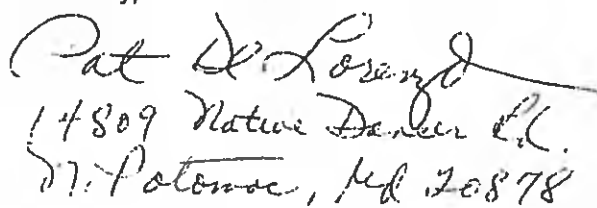 Pat De Lorenzo
14809 Native Dancer Rd.
N. Potomac, Md 20878